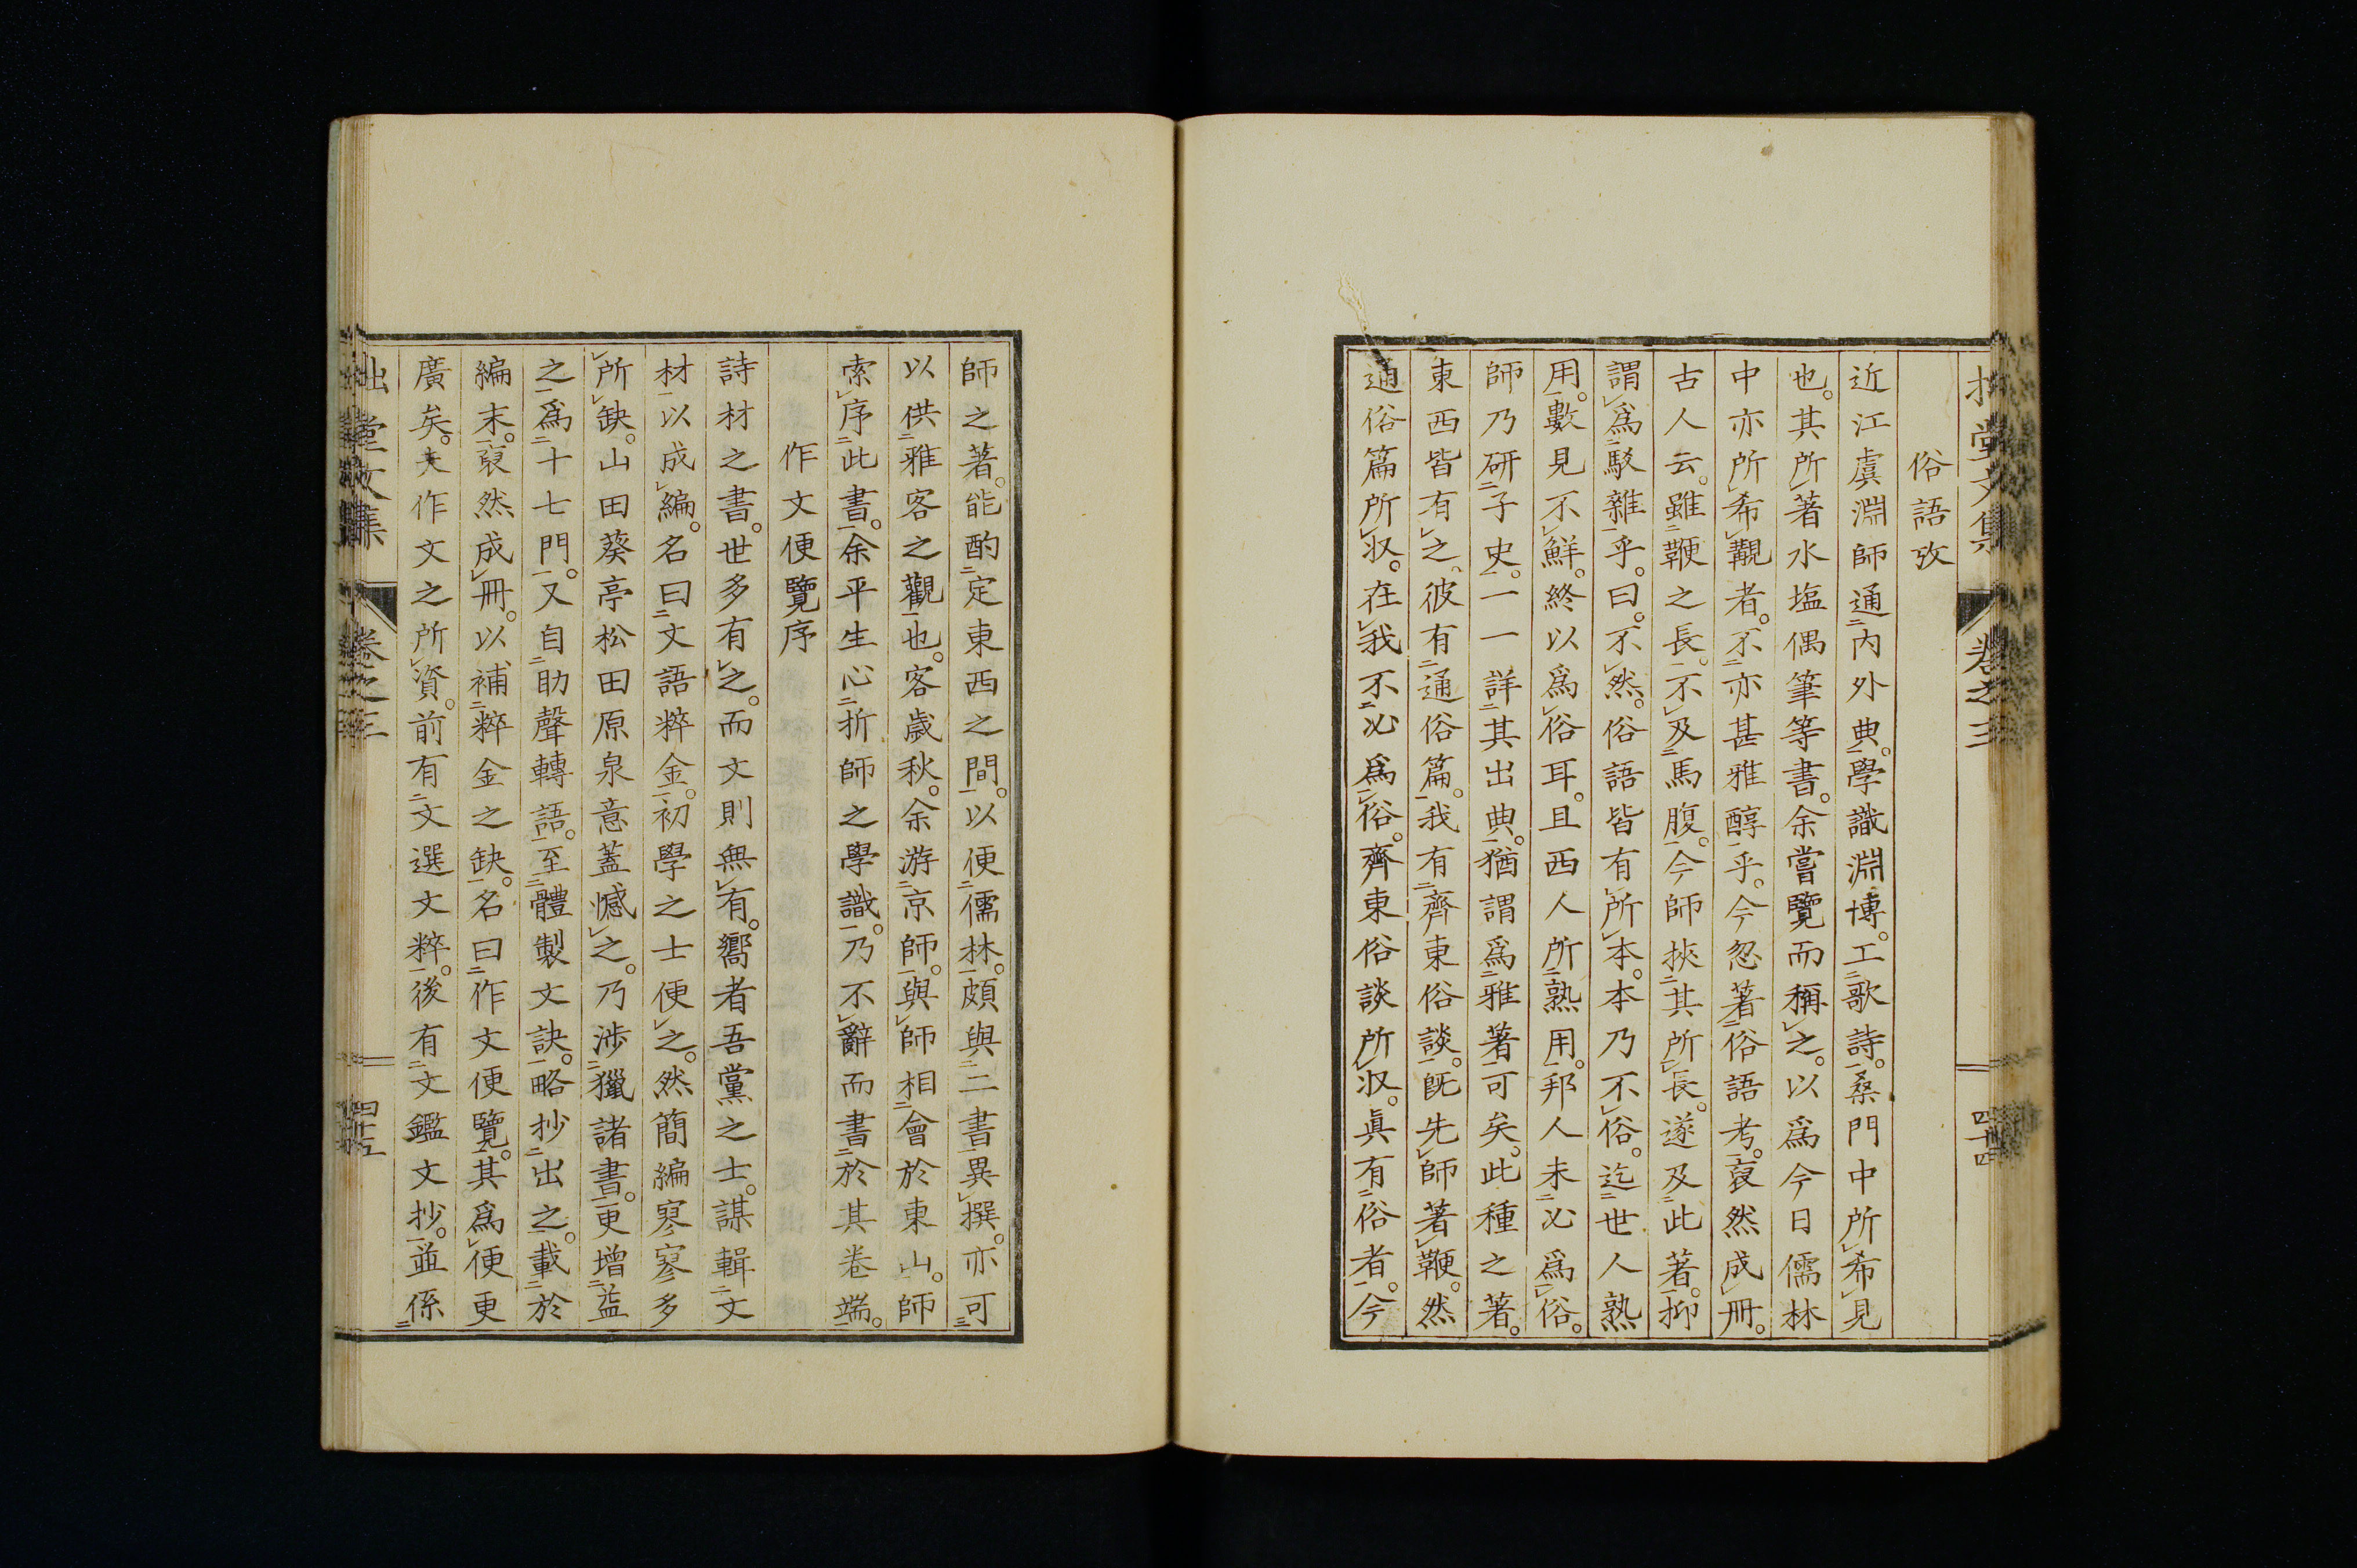 俗語攷
近江虞淵師通内外典。學識淵博。工歌詩。桑門中所希見
也。其所著水塩偶筆等書。余嘗覽而稱之。以爲今日儒林
中亦所希覯者。不亦甚雅醇乎。今忽著俗語考。裒然成冊。
古人云。雖鞭之長。不及馬腹。今師挾其所長。遂及此著。抑
謂爲駁雜乎。曰。不然。俗語皆有所本。本乃不俗。迄世人熟
用。數見不鮮。終以爲俗耳。且西人所熟用。邦人未必爲俗。
師乃研子史。一一詳其出典。猶謂爲雅著可矣。此種之著。
東西皆有之。彼有通俗篇。我有齊東俗談。既先師著鞭。然
通俗篇所収。在我不必爲俗。齊東俗談所収。眞有俗者。今
卷之三
四十四
師之著。能酌定東西之間。以便儒林。頗與二書異撰。亦可
以供雅客之觀也。客歳秋。余游京師。與師相會於東山。師
索序此書。余平生心折師之學識。乃不辭而書於其卷端。
作文便覽序
詩材之書。世多有之。而文則無有。嚮者吾黨之士。謀輯文
材以成編。名曰文語粹金。初學之士便之。然簡編寥寥多
所缺。山田葵亭松田原泉意蓋憾之。乃渉獵諸書。更增益
之爲十七門。又自助聲轉語。至體製文訣。略抄出之。載於
編末。裒然成冊。以補粹金之缺。名曰作文便覽。其爲便更
廣矣。夫作文之所資。前有文選文粹。後有文鑑文抄。並係
堂文集
卷之三
四十五